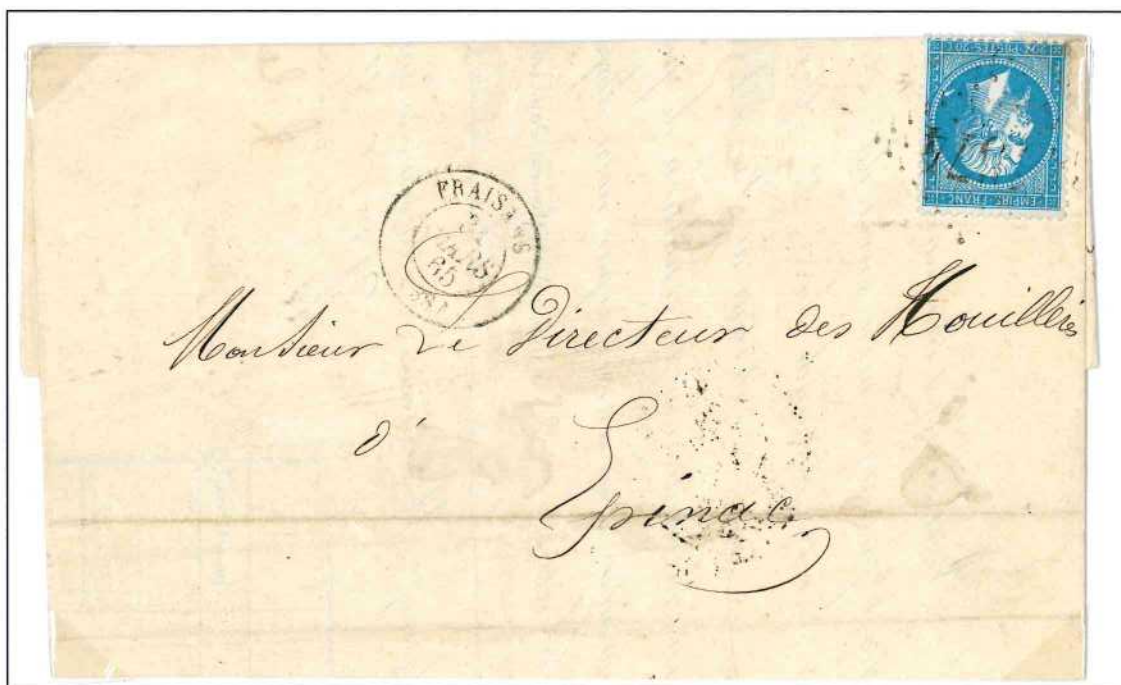 20c POSTES 20c
EMPIRE FRANC
FRAISANS
MARS
65
(38)
Monsieur Le Directeur des Houillères
d'
Epinac